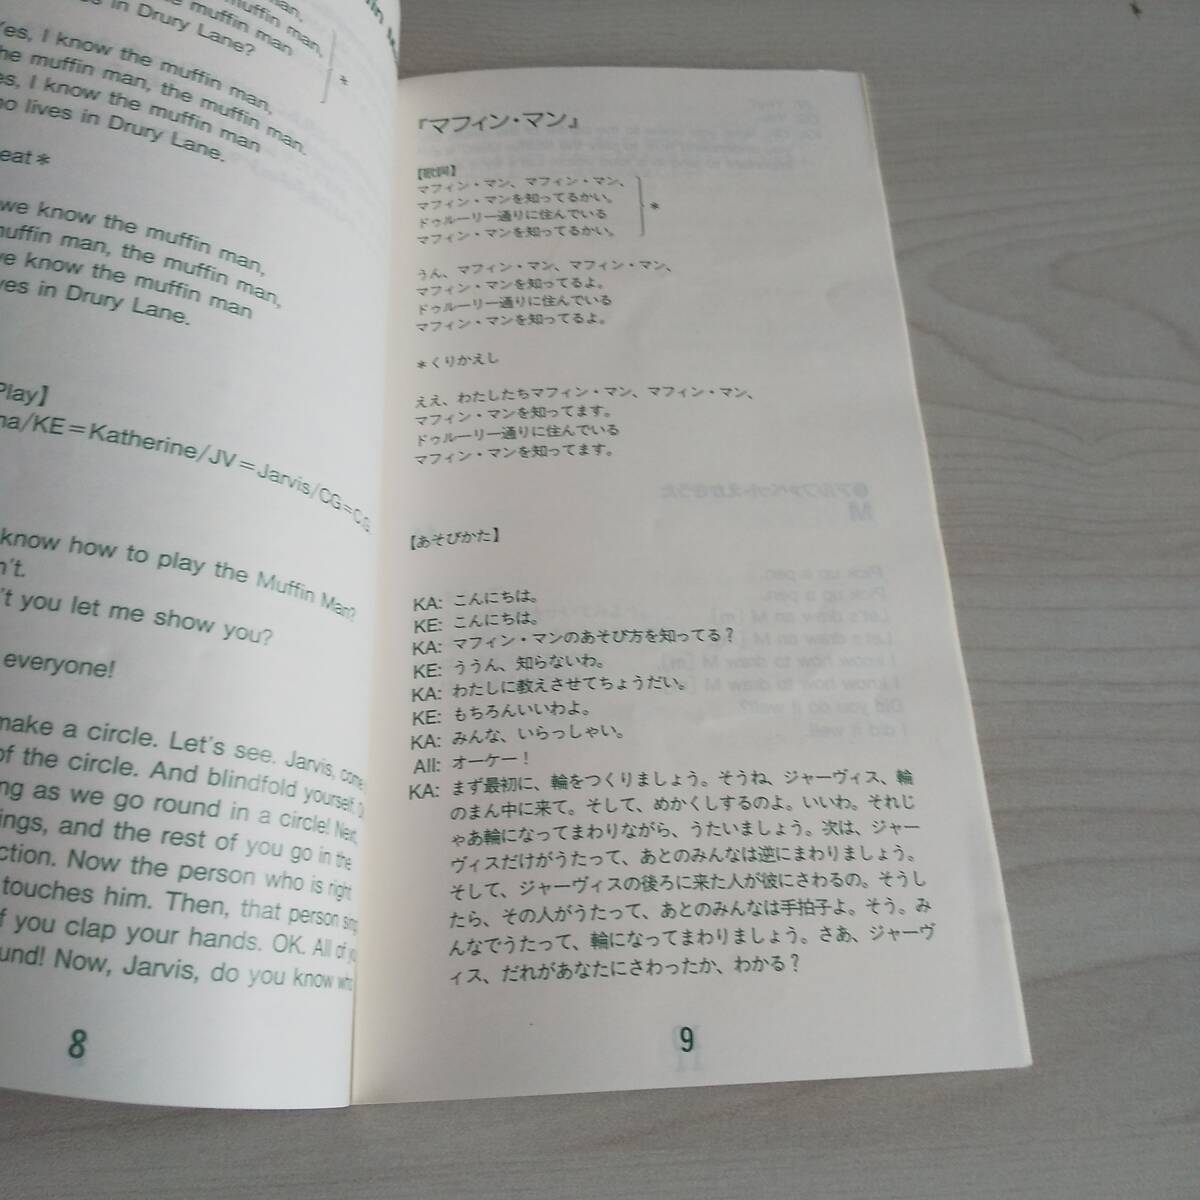 man,
muffin man,
the muffin man
in Drury Lane?
Yes, I know the muffin man,
the muffin man, the muffin man.
I know the muffin man
lives in Drury Lane.
*
we know the muffin man,
muffin man, the muffin man,
we know the muffin man
in Drury Lane.
Play】
KE=Katherine/JV=Jarvis/CG=C.G.
know how to play the Muffin Man?
you let me show you?
everyone!
make a circle. Let's see. Jarvis, come
of the circle. And blindfold yourself.
as we go round in a circle! Next,
and the rest of you go in the
Now the person who is right
touches him. Then, that person
you clap your hands. OK. All of
Now, Jarvis, do you know
8
『マフィン・マン』
【歌詞】
マフィン・マン、マフィン・マン、
マフィン・マンを知ってるかい。
ドゥルーリー通りに住んでいる
マフィン・マンを知ってるかい。
*
うん、マフィン・マン、マフィン・マン、
マフィン・マンを知ってるよ。
ドゥルーリー通りに住んでいる
マフィン・マンを知ってるよ。
*くりかえし
ええ、わたしたちマフィン・マン、マフィン・マン、
マフィン・マンを知ってます。
ドゥルーリー通りに住んでいる
マフィン・マンを知ってます。
【あそびかた】
KA: こんにちは。
KE: こんにちは。
KA: マフィン・マンのあそび方を知ってる?
KE: ううん、知らないわ。
KA: わたしに教えさせてちょうだい。
KE: もちろんいいわよ。
KA: みんな、いらっしゃい。
All: オーケー!
KA: まず最初に、輪をつくりましょう。そうね、ジャーヴィス、輪
のまん中に来て。そして、めかくしするのよ。いいわ。それじ
ゃあ輪になってまわりながら、うたいましょう。次は、ジャー
ヴィスだけがうたって、あとのみんなは逆にまわりましょう。
そして、ジャーヴィスの後ろに来た人が彼にさわるの。そうし
たら、その人がうたって、あとのみんなは手拍子よ。そう。み
んなでうたって、輪になってまわりましょう。さあ、ジャーヴ
ィス、だれがあなたにさわったか、わかる?
9